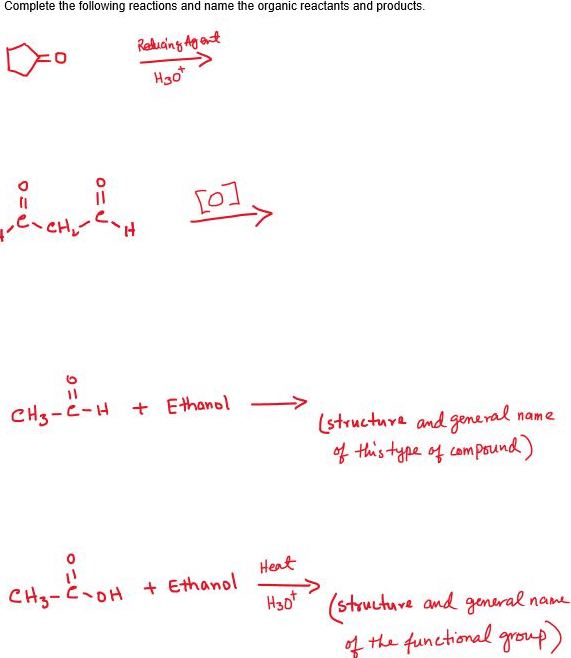 Complete the following reactions and name the organic reactants and products.
=O
Reducing Agent
H3O+
O O
|| ||
C-CH2-C-H
[O]
O
||
CH3-C-H + Ethanol
(structure and general name
of this type of compound)
O
||
CH3-C-OH + Ethanol
Heat
H3O+
(structure and general name
of the functional group)